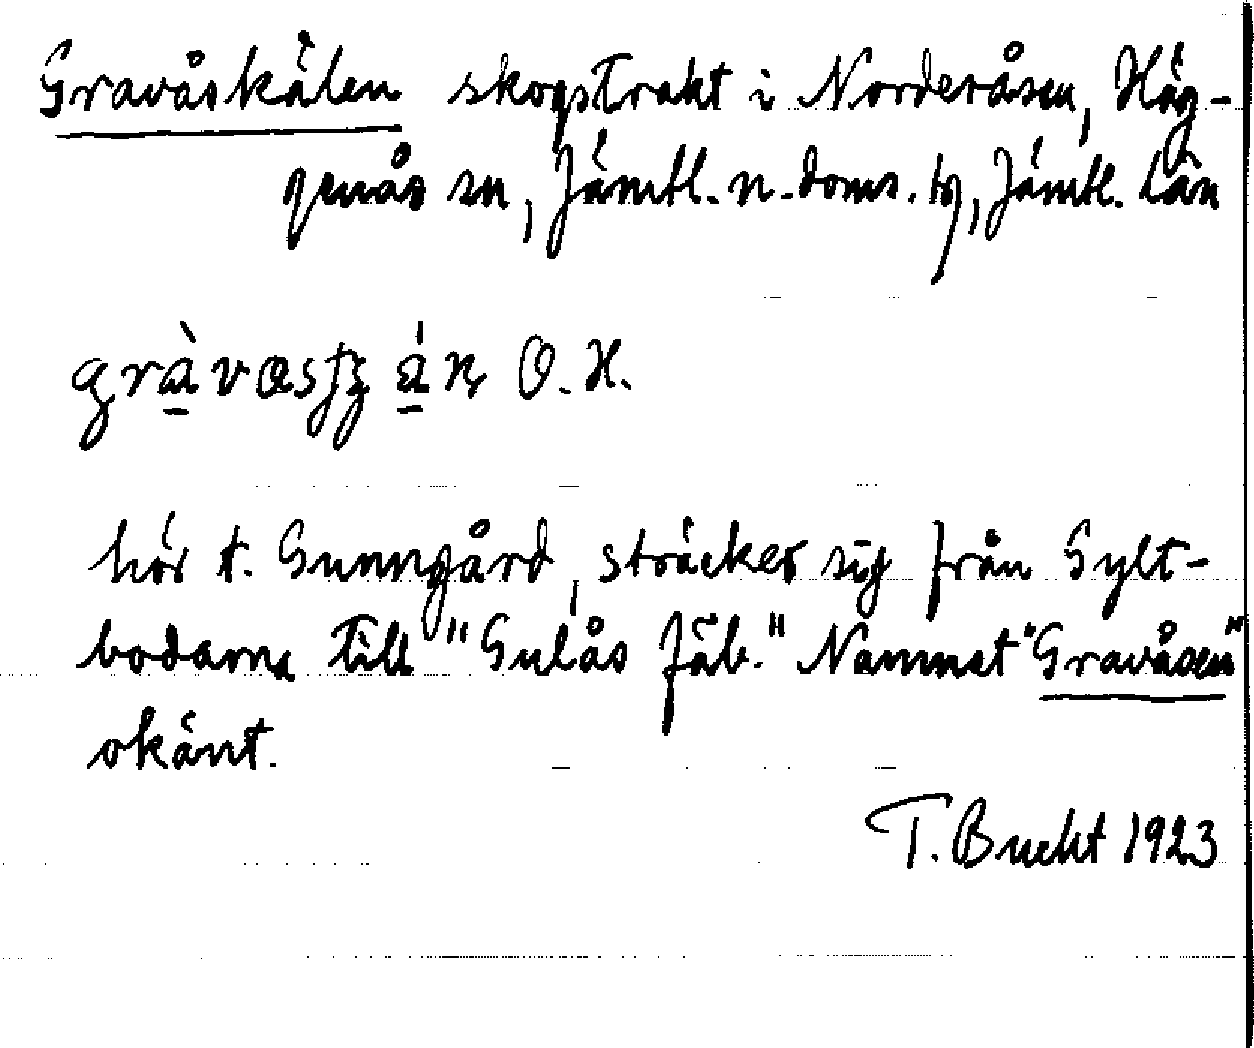 Gravåskälen skogstrakt i Norderåsen, Häg-
genås sn, Jämtl. n. doms. tg, Jämtl. län
O. H.
hör t. Gunngård, sträcker sig från Gylt-
bodarna till "Gulås fäb." Namnet "Gravåsen"
okänt.
T. Bucht 1923